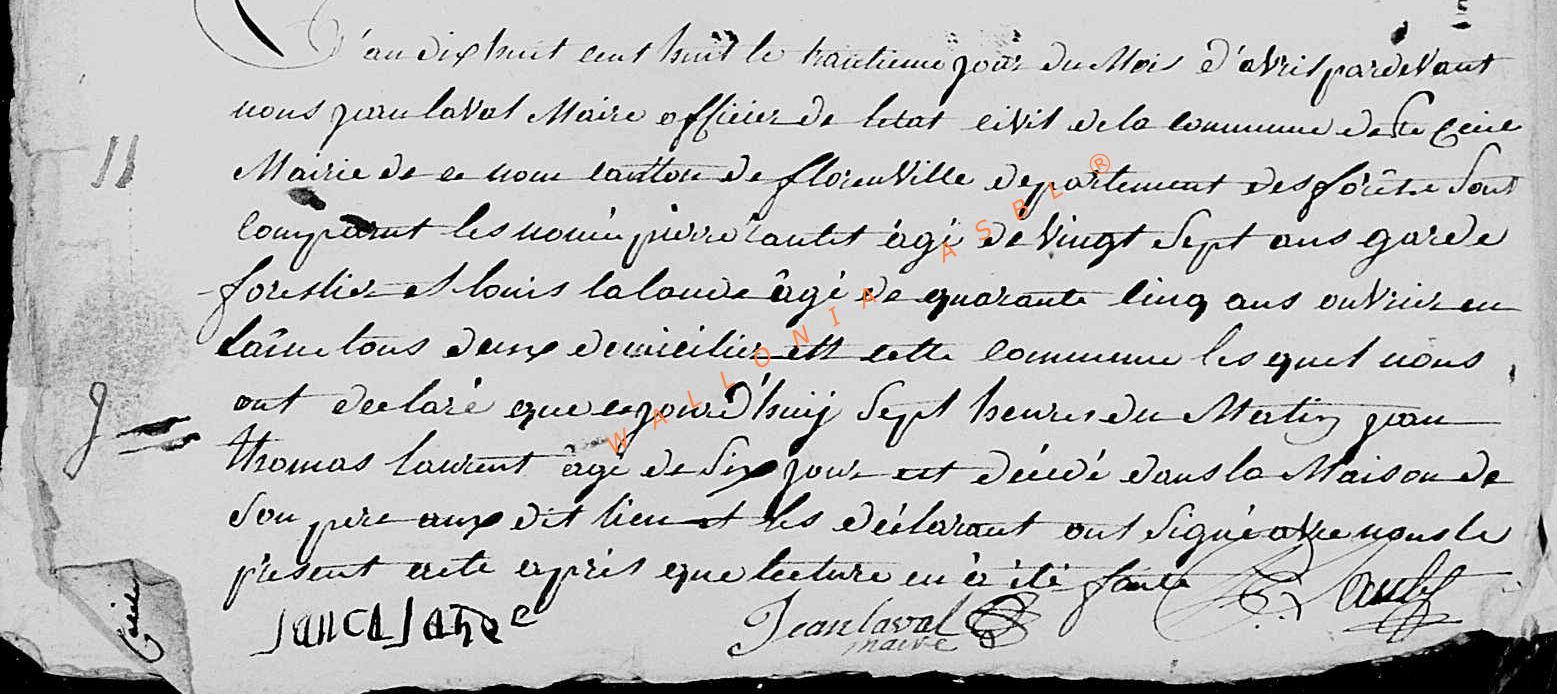 L'an dix huit cent huit le trantieme jour du Mois d'avril pardevant
nous jean laval Maire officier de letat civil de la commune de Ste Cecile
Mairie de ce nom cantton de florenville departement des forêts Sont
comparut les nomé pierre agé de vingt Sept ans garde
forestier et louis lalande âgé de quarante cinq ans ouvrier en
laine tous deux domicilié en cette commune les quel nous
ont declaré que ce jourd'huij Sept heures du Matin jean
thomas laurent âgé de Six jour est décédé dans la Maison de
Son pere aux dit lieu et les déclarant ont Signé avec nous le
présent acte après que lecture en a été faite
Jean laval
maire
11
WALLONIA ASBL ®